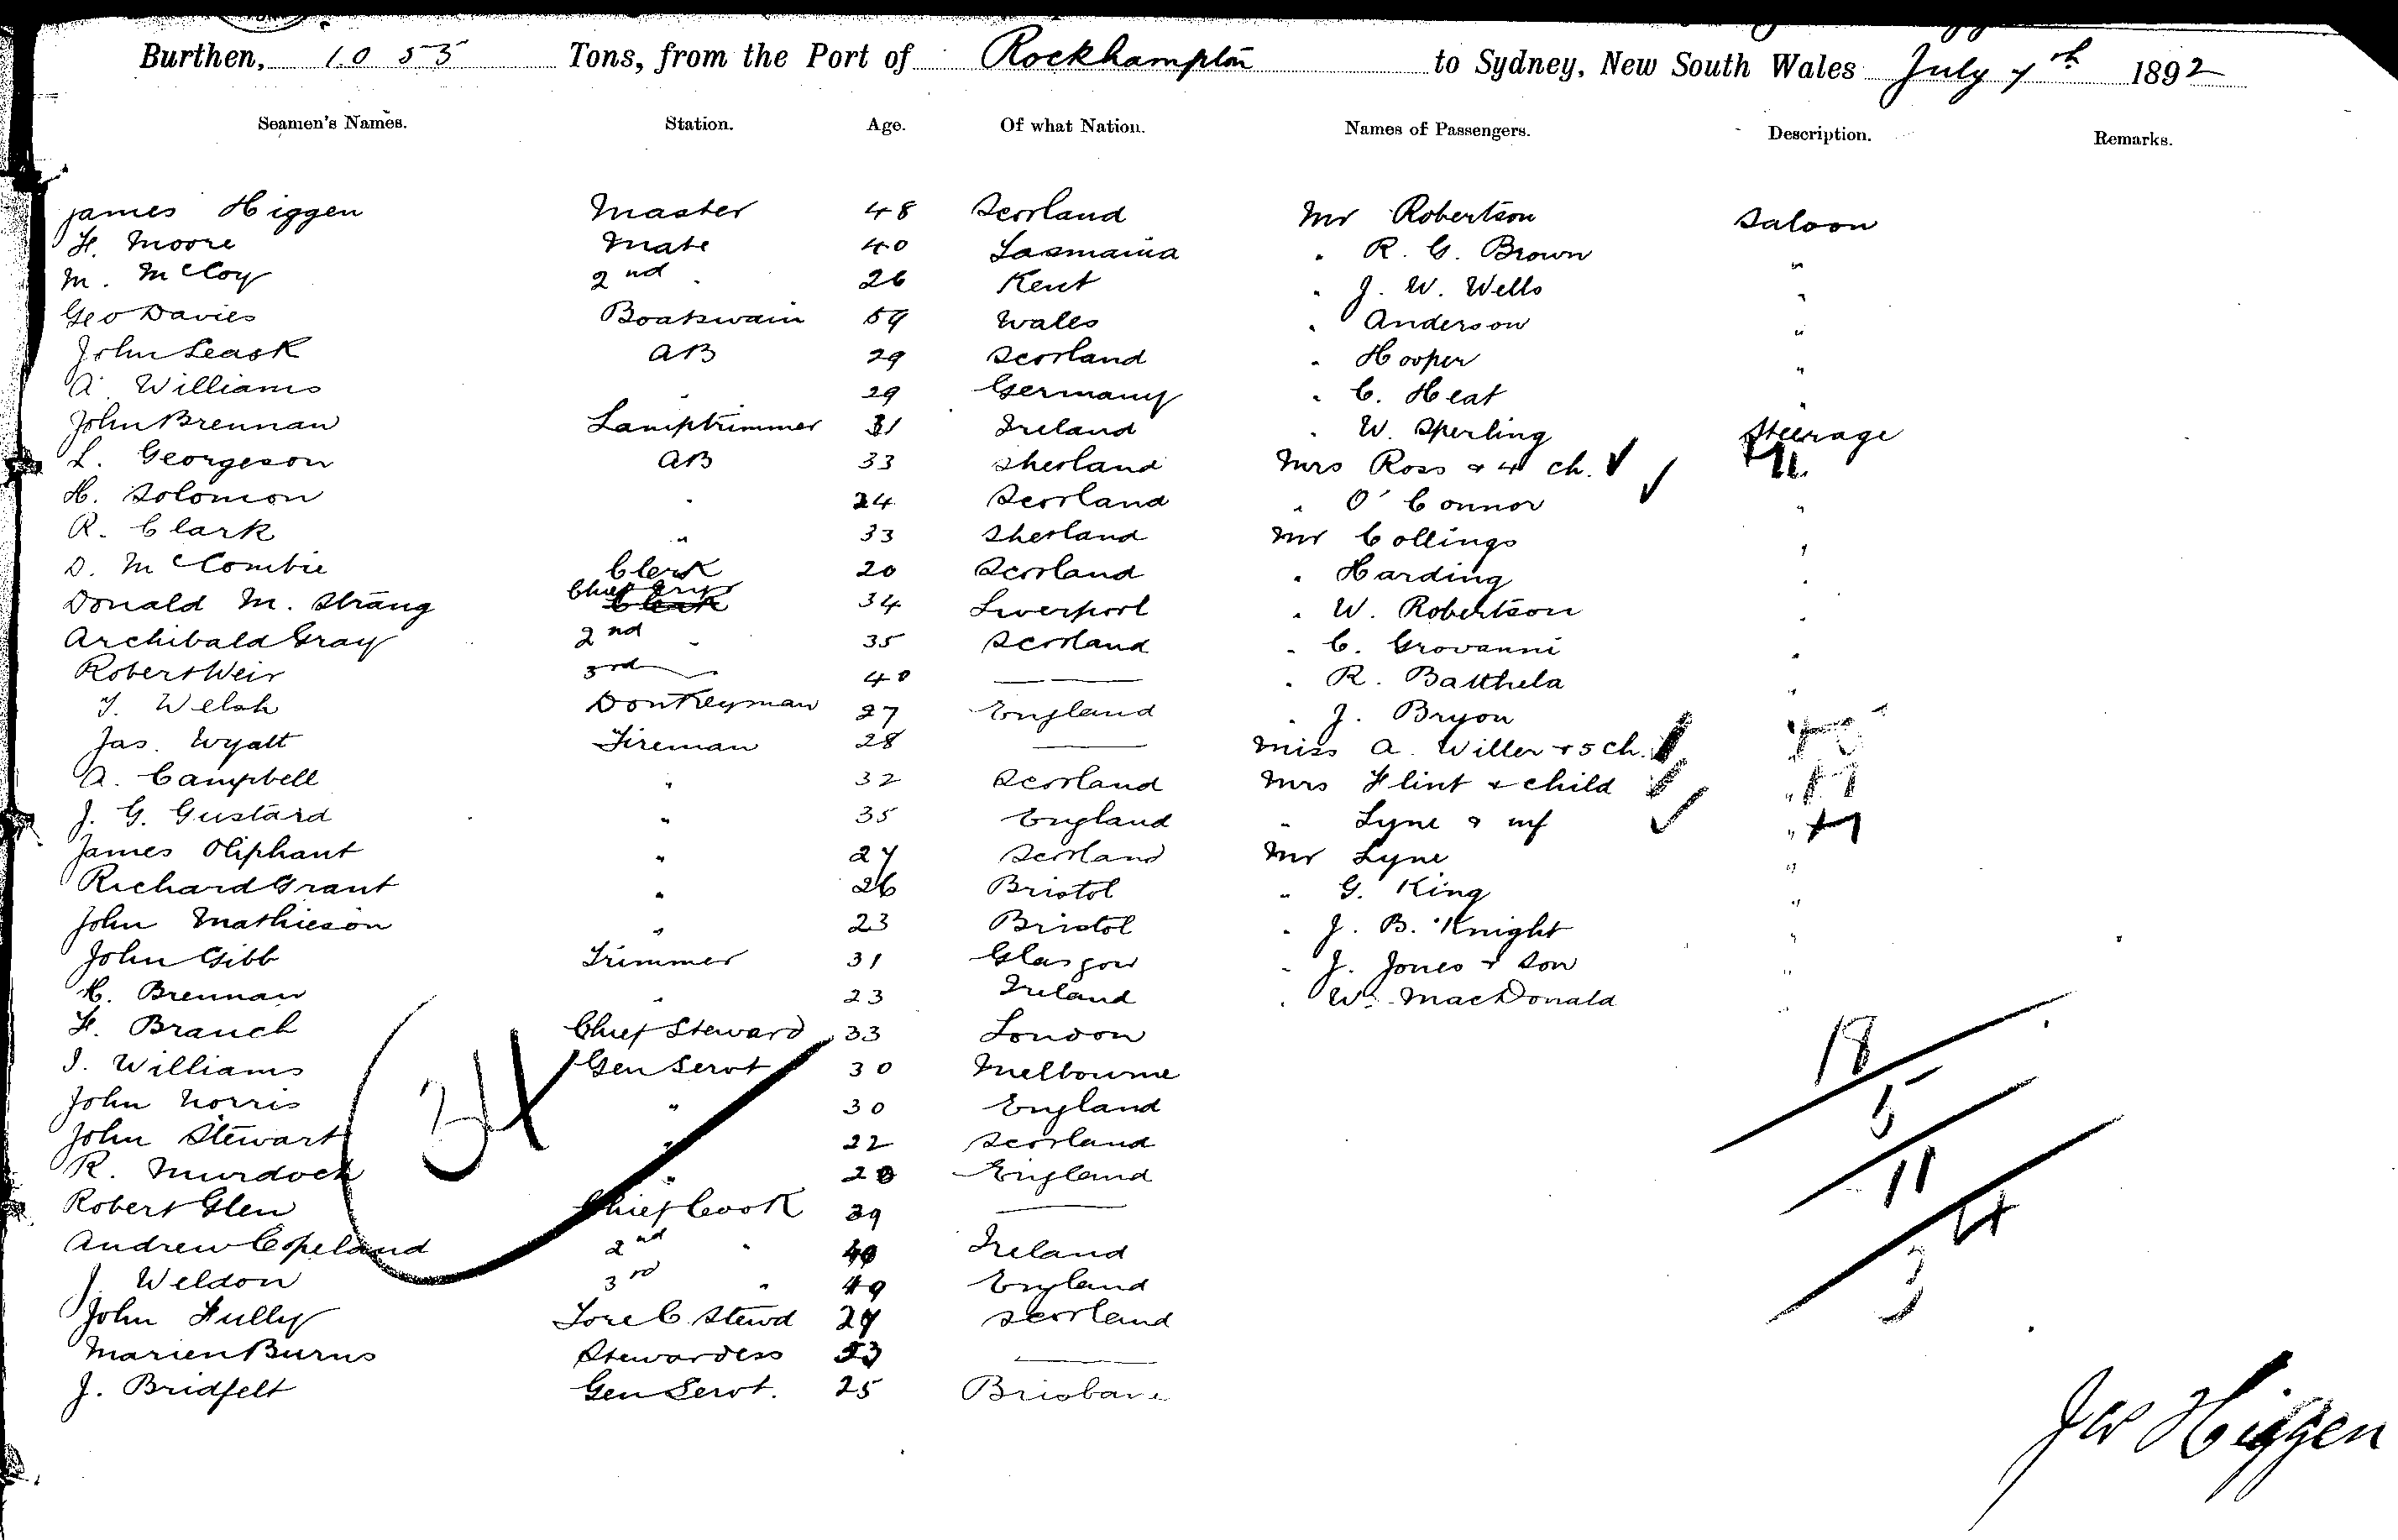 Burthen, 1053 Tons, from the Port of Rockhampton to Sydney, New South Wales July 7th 1892
Seamen's Names. Station. Age. Of what Nation. Names of Passengers. Description. Remarks.
James Higgen Master 48 Scotland Mr Robertson Saloon
H. Moore Mate 40 Tasmania " R. G. Brown "
M. McCoy 2nd " 26 Kent " J. W. Wells "
Geo Davies Boatswain 59 Wales " Anderson "
John Leask AB 29 Scotland " Hooper "
A. Williams " 29 Germany " C. Heat "
John Brennan Lamptrimmer 31 Ireland " W. Sperling Steerage
L. Georgeson AB 33 Shetland Mrs Ross & 4 ch. "
H. Solomon " 24 Scotland " O'Connor "
R. Clark " 33 Shetland Mr Collings "
D. McCombie Clerk 20 Scotland " Harding "
Donald M. Strang Chief Engr 34 Liverpool " W. Robertson "
Archibald Gray 2nd " 35 Scotland " C. Grovanni "
Robert Weir 3rd 40 — — " R. Batthela "
T. Welsh Donkeyman 27 England " J. Bryon "
Jas. Wyatt Fireman 28 — Miss A. Willer & 5 ch.
A. Campbell " 32 Scotland Mrs Flint & child "
J. G. Gustard " 35 England " Lyne & inf "
James Oliphant " 27 Scotland Mr Lyne "
Richard Grant " 26 Bristol " G. King "
John Mathieson " 23 Bristol " J. B. Knight "
John Gibb Trimmer 31 Glasgow " J. Jones & Son "
H. Brennan " 23 Ireland " W. MacDonald "
H. Branch Chief Steward 33 London
J. Williams Gen Servt 30 Melbourne
John Norris " 30 England
John Stewart " 22 Scotland
R. Murdoch " 20 England
Robert Glen Chief Cook 39 —
Andrew Copeland 2nd " 40 Ireland
J. Weldon 3rd " 49 England
John Fully Fore C. Stewd 27 Scotland
Marien Burns Stewardess 53 —
J. Bridfelt Gen Servt. 25 Brisbane
34
18
5
11
4
3
Jas Higgen